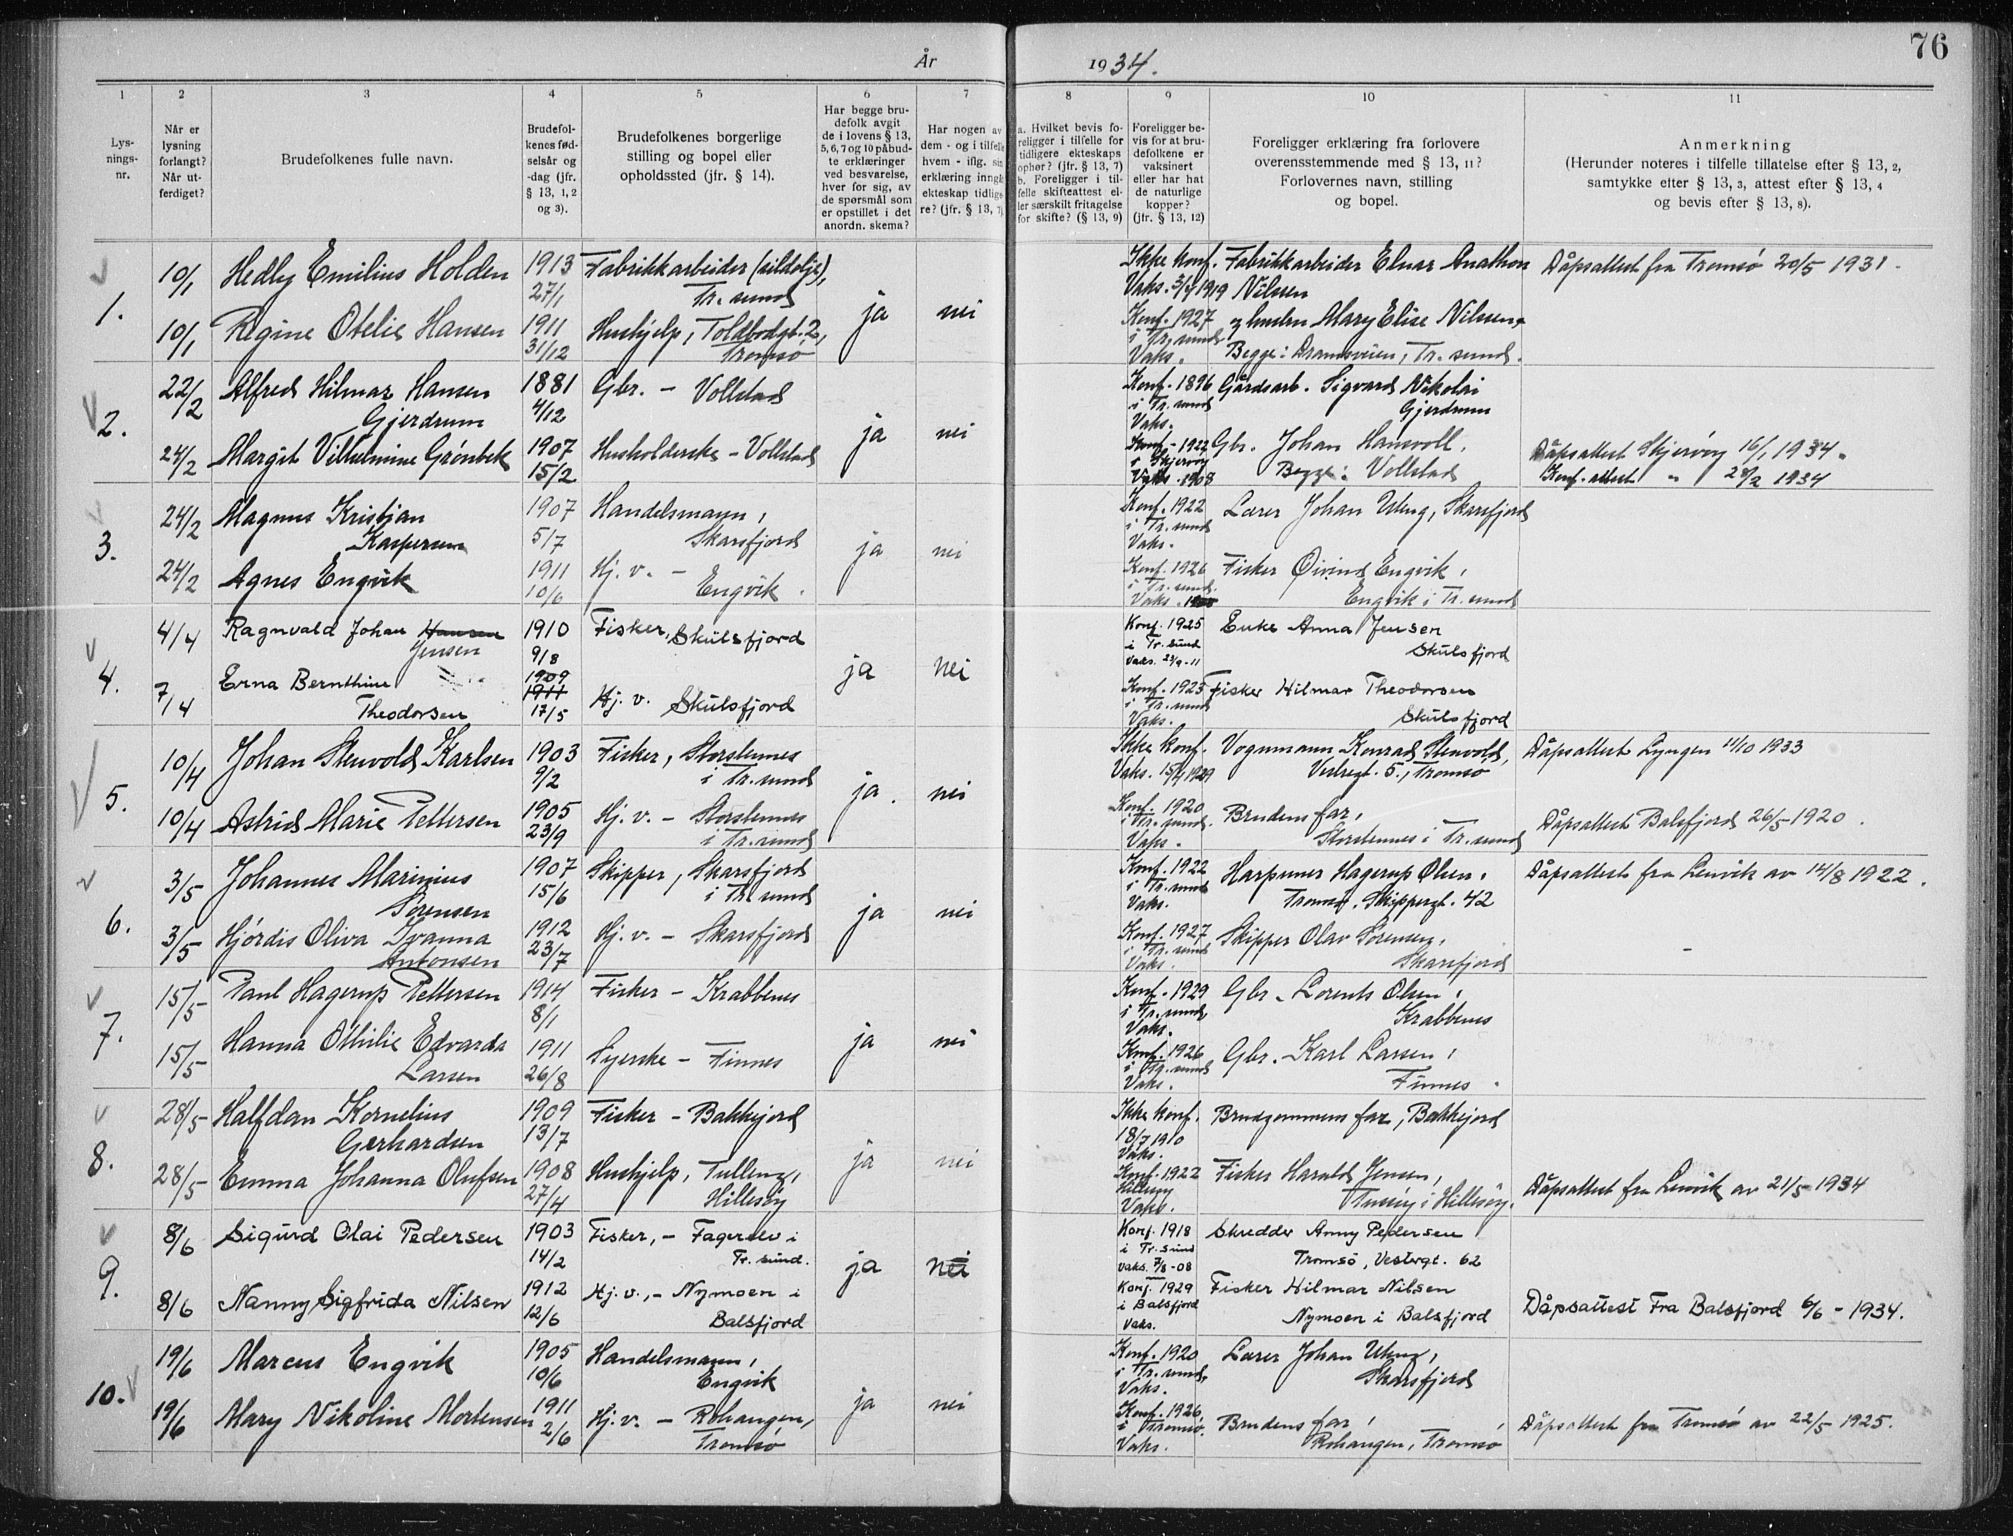 År 1934.
76
1 2 3 4 5 6 7 8 9 10 11
Lys-
nings-
nr.
Når er
lysning
forlangt?
Når ut-
ferdiget?
Brudefolkenes fulle navn.
Brudefol-
kenes fød-
selsår og
-dag (jfr.
§ 13, 1, 2
og 3).
Brudefolkenes borgerlige
stilling og bopel eller
opholdssted (jfr. § 14).
Har begge bru-
defolk avgit
de i lovens § 13,
5, 6, 7 og 10 påbud-
te erklæringer
ved besvarelse,
hver for sig, av
de spørsmål som
er opstillet i det
anordn. skema?
Har nogen av
dem - og i tilfelle
hvem - iflg. sin
erklæring inngå
ekteskap tidlige
re? (jfr. § 13, 7)
a. Hvilket bevis fo-
religger i tilfelle for
tidligere ekteskaps
ophør? (jfr. § 13, 7)
b. Foreligger i til-
felle skifteattest el-
ler særskilt fritagelse
for skifte? (§ 13, 9)
Foreligger be-
vis for at bru-
defolkene er
vaksinert
eller har hat
de naturlige
kopper?
(jfr. § 13, 12)
Foreligger erklæring fra forlovere
overensstemmende med § 13, 11?
Forlovernes navn, stilling
og bopel.
Anmerkning
(Herunder noteres i tilfelle tillatelse efter § 13, 2,
samtykke efter § 13, 3, attest efter § 13, 4
og bevis efter § 13, 8).
1.
10/1 Hedley Emilius Holden 1913 Fabrikkarbeider (sildolje), Ikke konf. Fabrikkarbeider Elnar Anathon Dåpsattest fra Tromsø 20/5 1931.
27/1 Tr. sund ja nei Vaks. 3/7 1919 Nilssen
10/1 Regine Otelie Hansen 1911 Hushjelp, Toldbodgt. 2, Konf. 1927 og hustru Mary Elise Nilssen
31/12 Tromsø i Tr. sund Vaks. Begge: Dramsveien, Tr. sund.
2.
22/2 Alfred Hilmar Hansen 1881 Gbr. - Vollstad Konf. 1896 Gårdsarb. Sigvard Nikolai
Gjerdrum 4/12 ja nei i Tr. sund Vaks. Gjerdrum
24/2 Margit Vilhelmine Grønbek 1907 Husholderske - Vollstad Konf. 1922 Gbr. Johan Hansvoll. Dåpsattest Skjervøy 16/1 1934.
15/2 i Skjervøy Vaks. 1908 Begge: Vollstad Konf. attest " 1934
3.
24/2 Magnus Kristjan 1907 Handelsmann, Konf. 1922 Lærer Johan Uteng, Skarsfjord
Kaspersen 5/7 Skarsfjord ja nei i Tr. sund Vaks.
24/2 Agnes Engvik 1911 Hj. v. - Konf. 1926 Fisker Øivind Engvik,
10/6 Engvik. i Tr. sund. Vaks. Engvik i Tr. sund
4.
4/4 Ragnvald Johan Hansen 1910 Fisker, Skulsfjord Konf. 1925 Enke Anna Jensen
Jensen 9/8 ja nei i Tr. sund Vaks. 23/9-11 Skulsfjord
7/4 Erna Bernthine 1909 1911 Hj. v. Skulsfjord Konf. 1925 Fisker Hilmar Theodorsen
Theodorsen 17/5 i Tr. sund Vaks. Skulsfjord
5.
10/4 Johan Stenvold Karlsen 1903 Fisker, Storstennes Ikke konf. Vognmann Konrad Stenvold, Dåpsattest Lyngen 11/10 1933
9/2 i Tr. sund ja. nei Vaks. 15/4 1929 Vestregt. 5., Tromsø
10/4 Astrid Marie Pettersen 1905 Hj. v. - Storstennes Konf. 1920 Brudens far, Dåpsattest Balsfjord 26/5-1920.
23/9 i Tr. sund i Tr. sund. Vaks. Storstennes i Tr. sund
6.
3/5 Johannes Marinius 1907 Skipper, Skarsfjord Konf. 1922 Harpuner Hagerup Olsen, Dåpsattest fra Lenvik av 14/8 1922.
Sørensen 15/6 i Tr. sund ja nei i Tr. sund Vaks. Tromsø. Skippergt. 42
3/5 Hjørdis Oliva Ivanna 1912 Hj. v. - Skarsfjord Konf. 1927 Skipper Olav Sørensen,
Antonsen 23/7 i Tr. sund Vaks. Skarsfjord
7.
15/5 Paul Hagerup Pettersen 1914 Fisker - Krabbenes Konf. 1929 Gbr. Lorents Olsen,
8/1 ja nei i Tr. sund, Vaks. Krabbenes
15/5 Hanna Othilie Edvarda 1911 Syerske - Finnes Konf. 1926 Gbr. Karl Larsen,
Larsen 26/8 i Tr. sund Vaks. Finnes.
8.
28/5 Halfdan Kornelius 1909 Fisker - Bakkejord Ikke konf. Brudgommens far, Bakkejord
Gerhardsen 13/7 ja nei 18/7 1910 Vaks.
28/5 Emma Johanna Olufsen 1908 Hushjelp, Tulleng, Konf. 1922 Fisker Harald Jensen, Dåpsattest fra Lenvik av 21/5-1934
27/4 Hillesøy Hillesøy Vaks. Tussøy i Hillesøy.
9.
8/6 Sigurd Olai Pedersen 1903 Fisker, - Fagerelv i Konf. 1918 Skredder Anny Pedersen
14/2 Tr. sund. ja nei i Tr. sund Vaks. 7/8-08 Tromsø, Vestregt. 62
8/6 Nanny Sigfrida Nilsen 1912 Hj. v., - Nymoen i Konf. 1929 Fisker Hilmar Nilsen Dåpsattest Fra Balsfjord 6/6 - 1934.
12/6 Balsfjord i Balsfjord Vaks. Nymoen i Balsfjord
10.
19/6 Marcus Engvik 1905 Handelsmann, Konf. 1920 Lærer Johan Uteng,
10/6 Engvik ja nei i Tr. sund, Vaks. Skarsfjord
19/6 Mary Nikoline Mortensen 1911 Hj. v. - Rohangen, Konf. 1926 Brudens far, Dåpsattest fra Tromsø av 22/5 1925.
2/6 Tromsø i Tromsø. Vaks. Rohangen, Tromsø